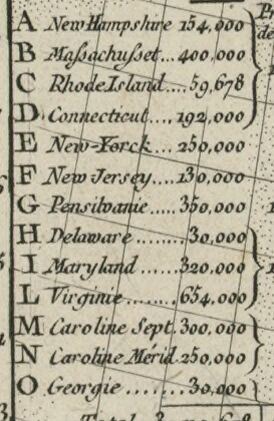 A New Hampshire 154,000
B Maſsachuſset... 400,000
C Rhode Island.... 59,678
D Connecticut.... 192,000
E New-Yorck... 250,000
F New Jersey.... 130,000
G Pensilvanie..... 350,000
H Delaware ........ 30,000
I Maryland ...... 320,000
L Virginie........ 654,000
M Caroline Sept. 300,000
N Caroline Mérid. 250,000
O Georgie ....... 30,000
Total